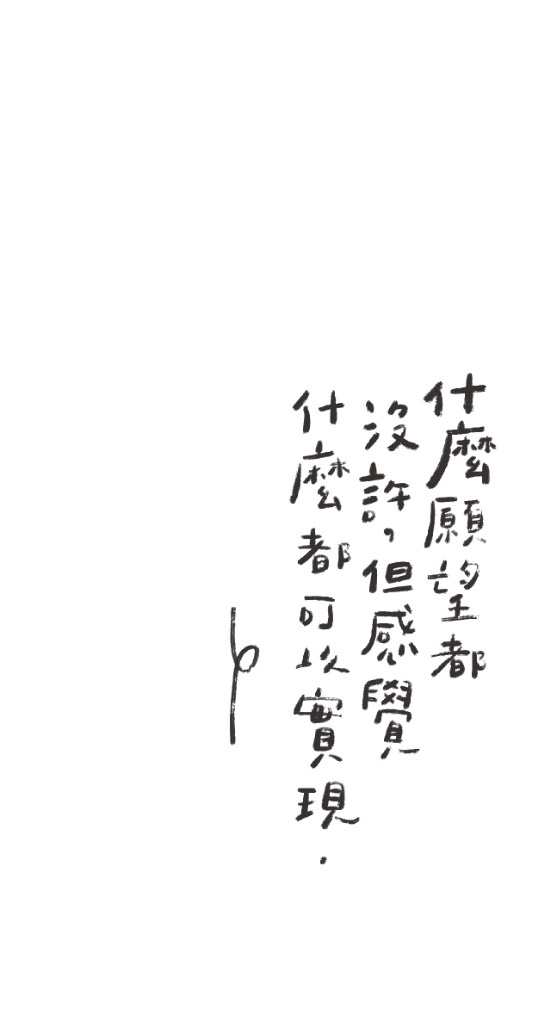 什麼願望都
沒許，但感覺
什麼都可以實現．